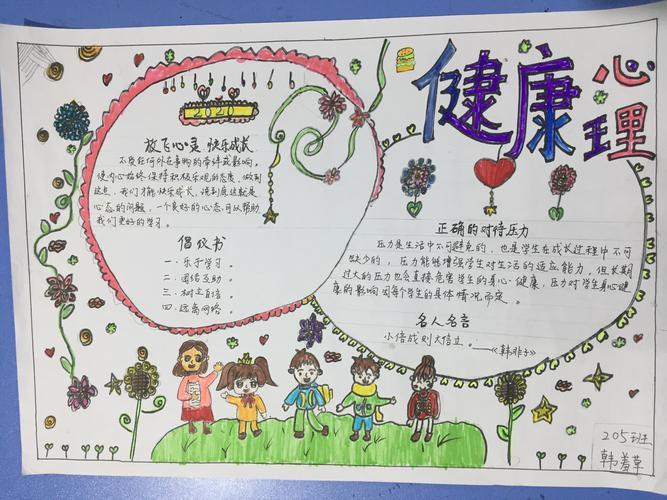 健康心理
2020
放飞心灵 快乐成长
不受任何外在事物的牵绊或影响。
使内心始终保持积极乐观的态度,做到
这点,我们才能快乐成长,说到底这就是
心态的问题,一个良好的心态可以帮助
我们更好的学习。
倡仪书
一、乐于学习。
二、团结互助
三、树立自信。
四、远离网络。
正确的对待压力
压力是生活中不可避免的,也是学生在成长过程中不可
缺少的,压力能够增强学生对生活的适应能力,但长期
过大的压力也会直接危害学生的身心健康,压力对学生身心健
康的影响因每个学生的具体情况而定。
名人名言
小信成则大信立。——《韩非子》
205班
韩羞草